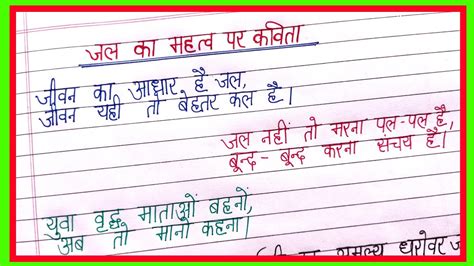 जल का महत्व पर कविता
जीवन का आधार है जल,
जीवन यही तो बेहतर कल है।
जल नहीं तो मरना पल-पल है,
बून्द-बून्द करना संचय है।
युवा वृद्ध माताओं बहनों,
अब तो मानो कहना।
धरोवर ज